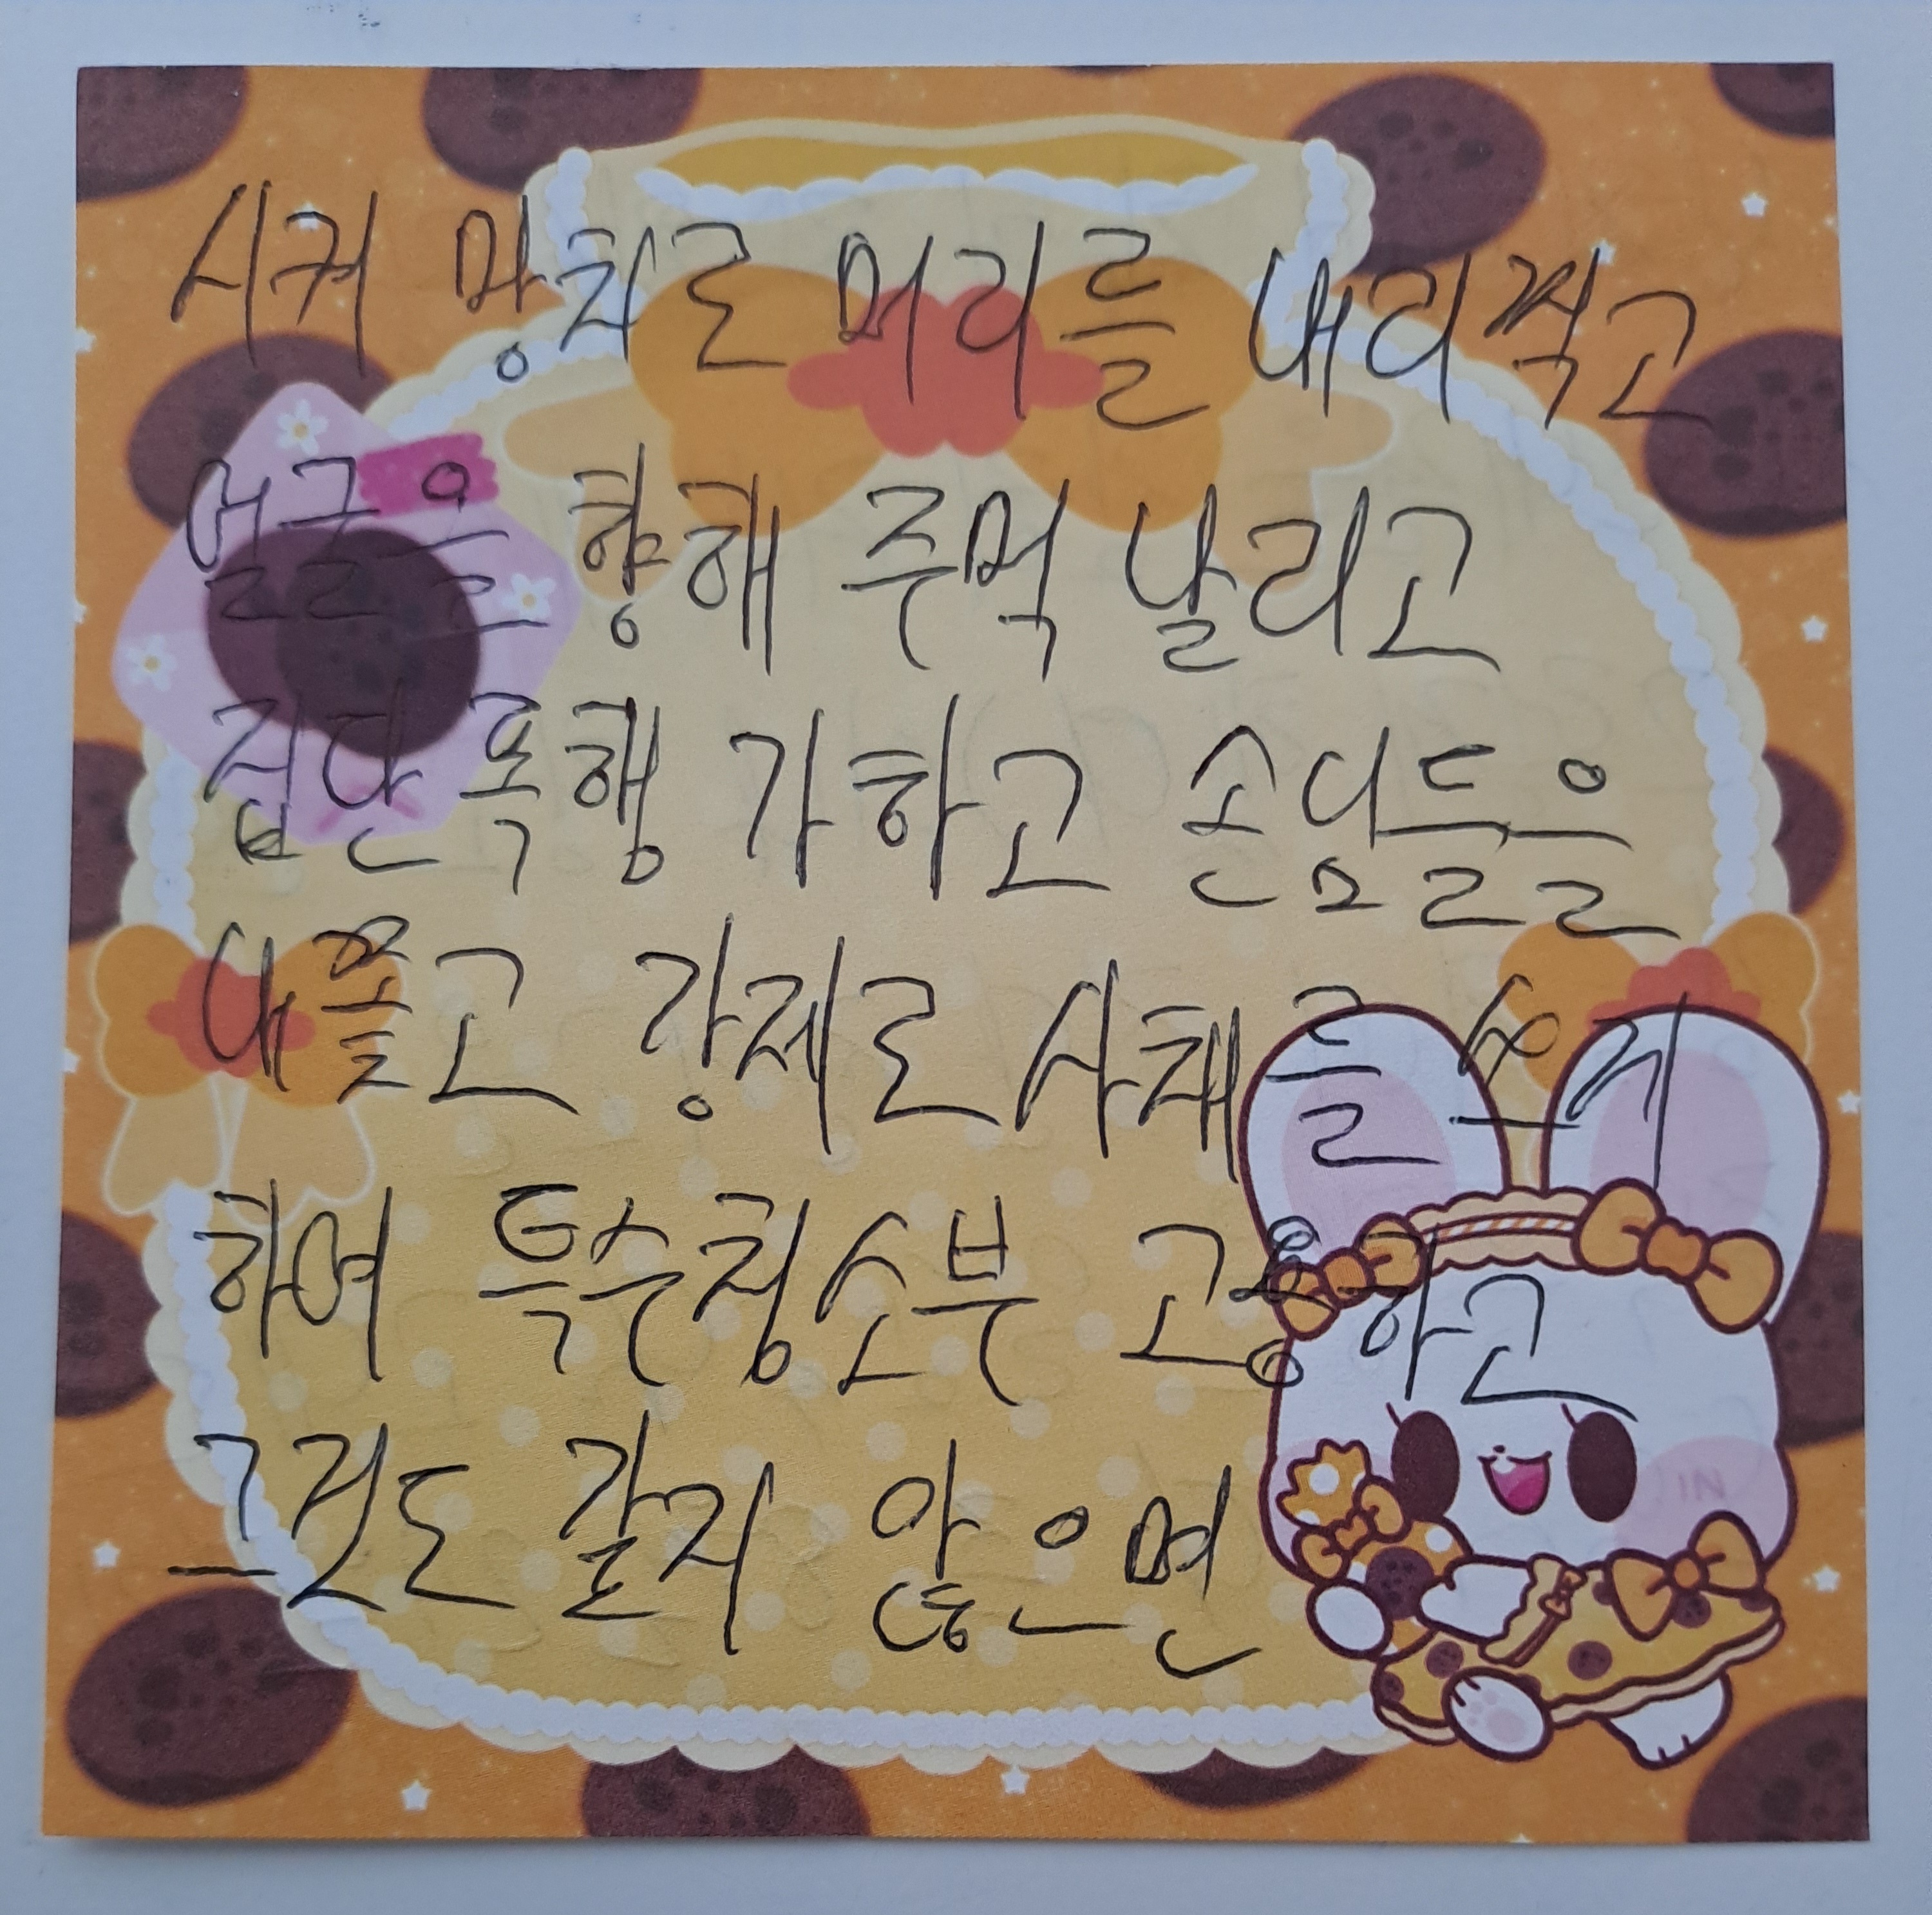 시켜 망치로 머리를 내리찍고
얼굴을 향해 주먹 날리고
집단폭행 가하고 손님들을
내쫓고 강제로 사태를
하여 특수청소부 고용하고
그것도 갈지 않으면